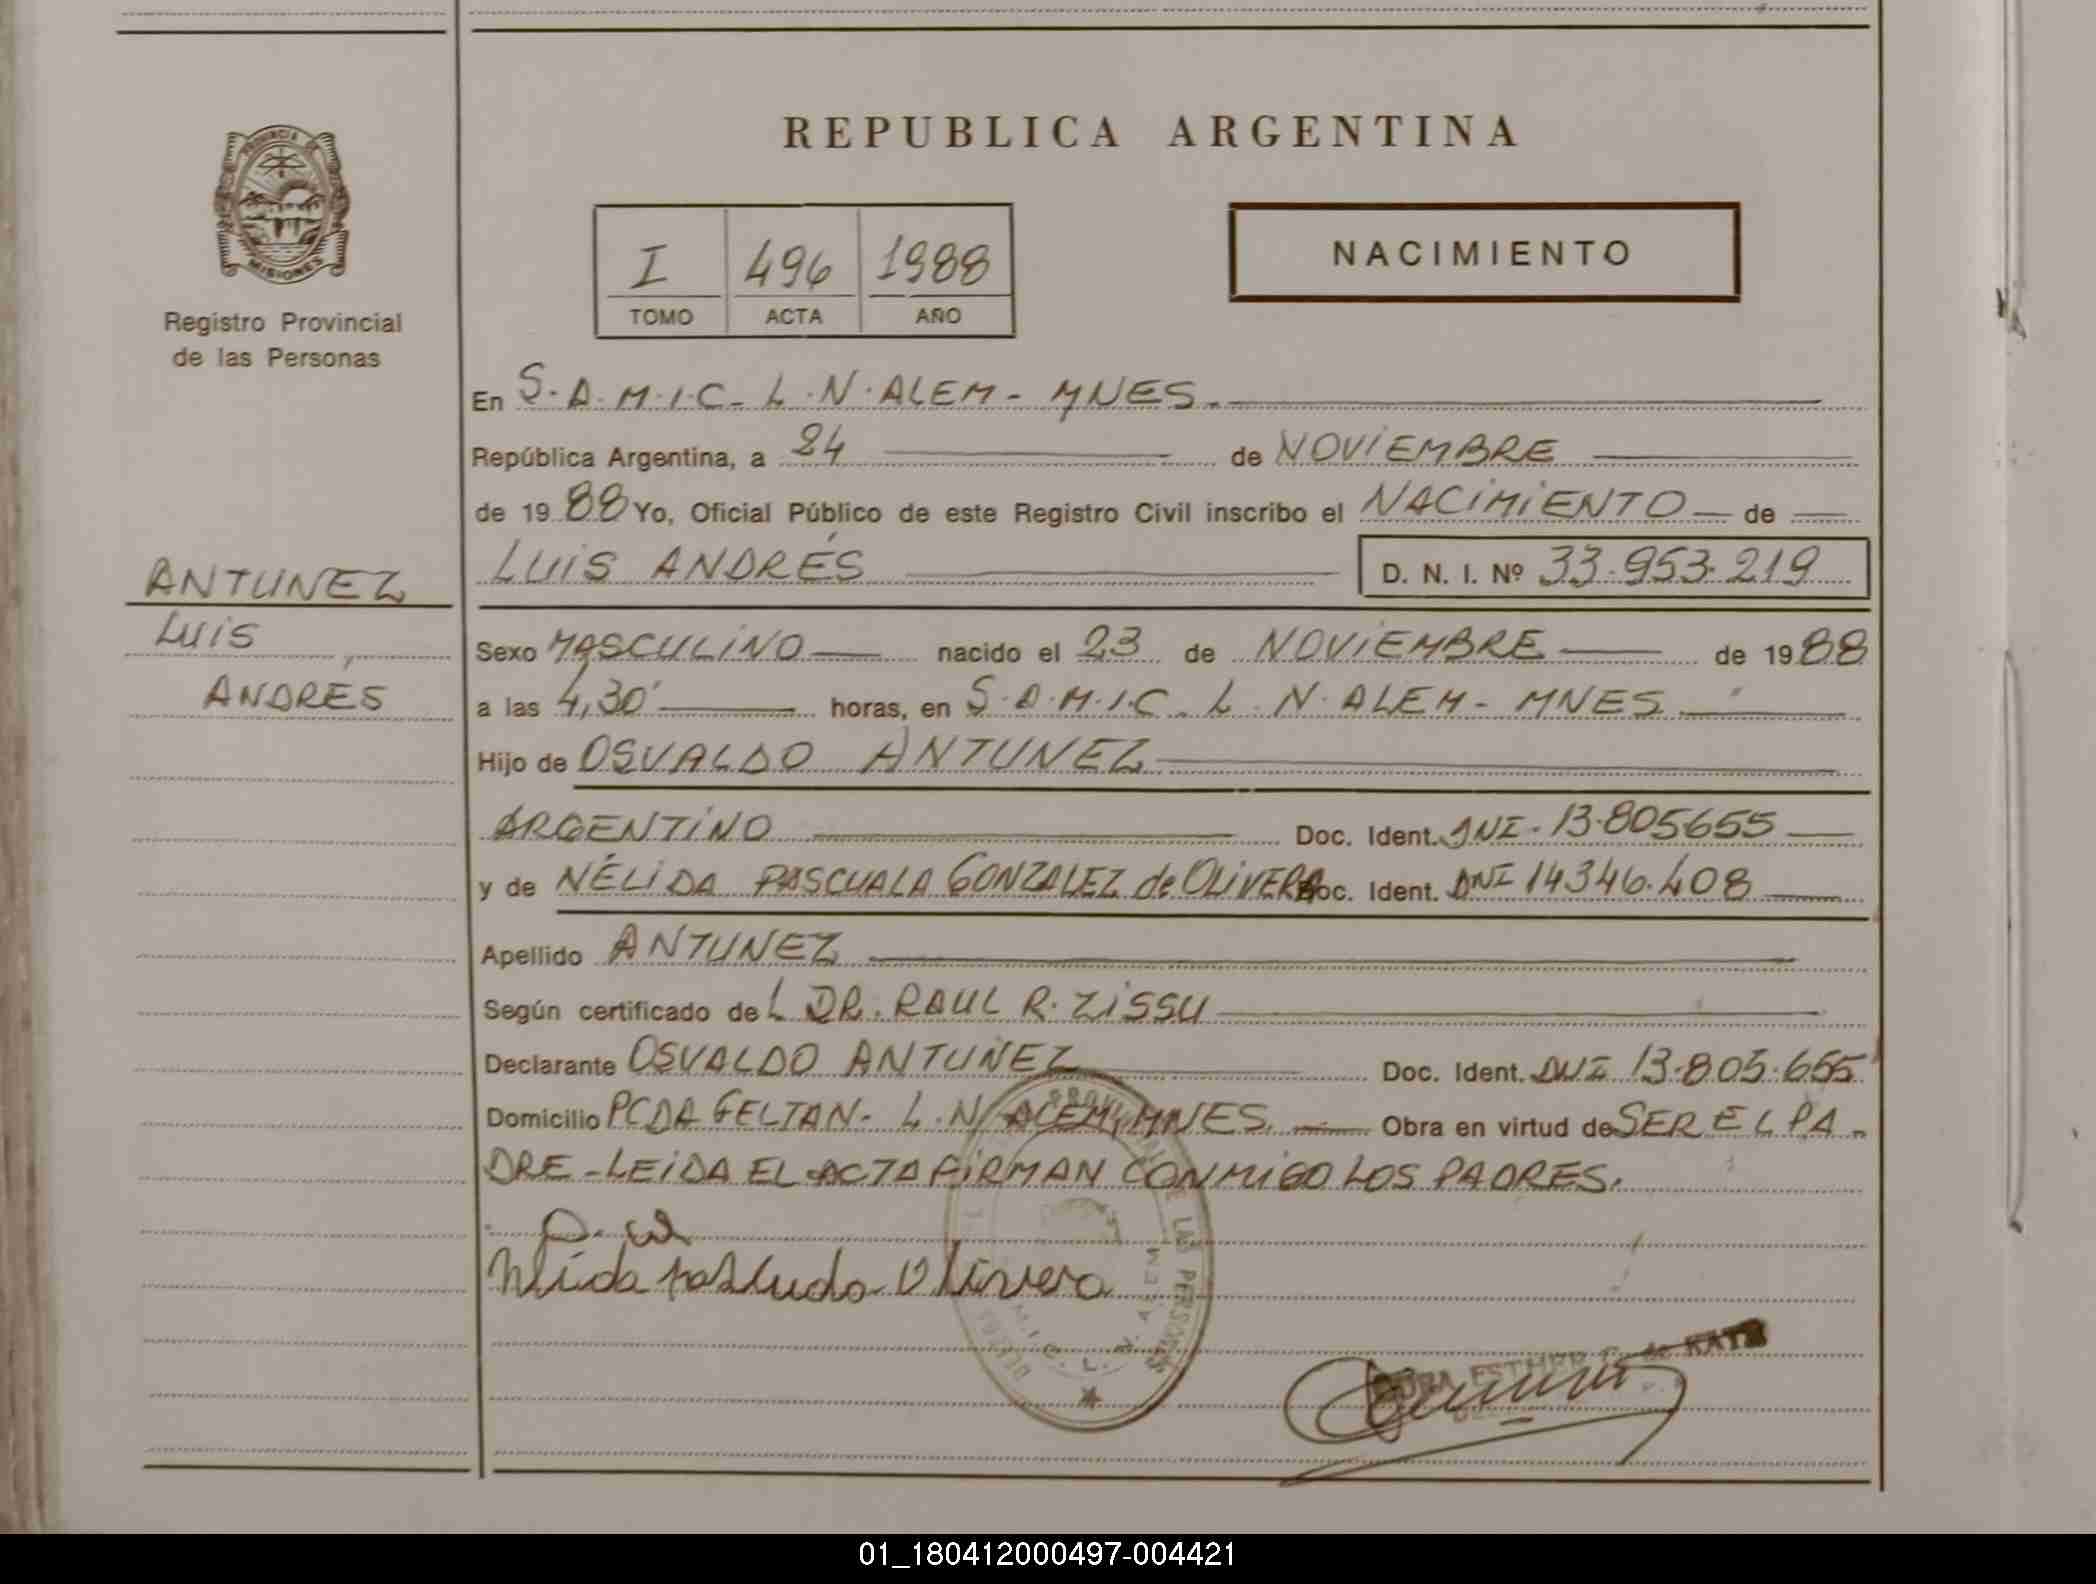 REPUBLICA ARGENTINA
PROVINCIA DE
MISIONES
Registro Provincial
de las Personas
I 496 1988
TOMO ACTA AÑO
NACIMIENTO
En S.A.M.I.C- L.N.ALEM- MNES.
República Argentina, a 24 de NOVIEMBRE
de 1988 Yo, Oficial Público de este Registro Civil inscribo el NACIMIENTO de
LUIS ANDRÉS D. N. I. Nº 33.953.219
ANTUNEZ
LUIS
ANDRES
Sexo MASCULINO nacido el 23 de NOVIEMBRE de 1988
a las 4,30' horas, en S.A.M.I.C. L.N.ALEM- MNES
Hijo de OSVALDO ANTUNEZ
ARGENTINO Doc. Ident. DNI. 13.805655
y de NÉLIDA PASCUALA GONZALEZ de OLIVERA Doc. Ident. DNI 14346.408
Apellido ANTUNEZ
Según certificado del DR. RAUL R. ZISSU
Declarante OSVALDO ANTUNEZ Doc. Ident. DNI 13.805.655
Domicilio PCDA GELTAN- L.N. ALEM, MNES. Obra en virtud de SER EL PA-
DRE-LEIDA EL ACTA FIRMAN CONMIGO LOS PADRES.
Olivera
DE LAS PERSONAS
L. N. ALEM
ESTHER de KATZ
01_180412000497-004421